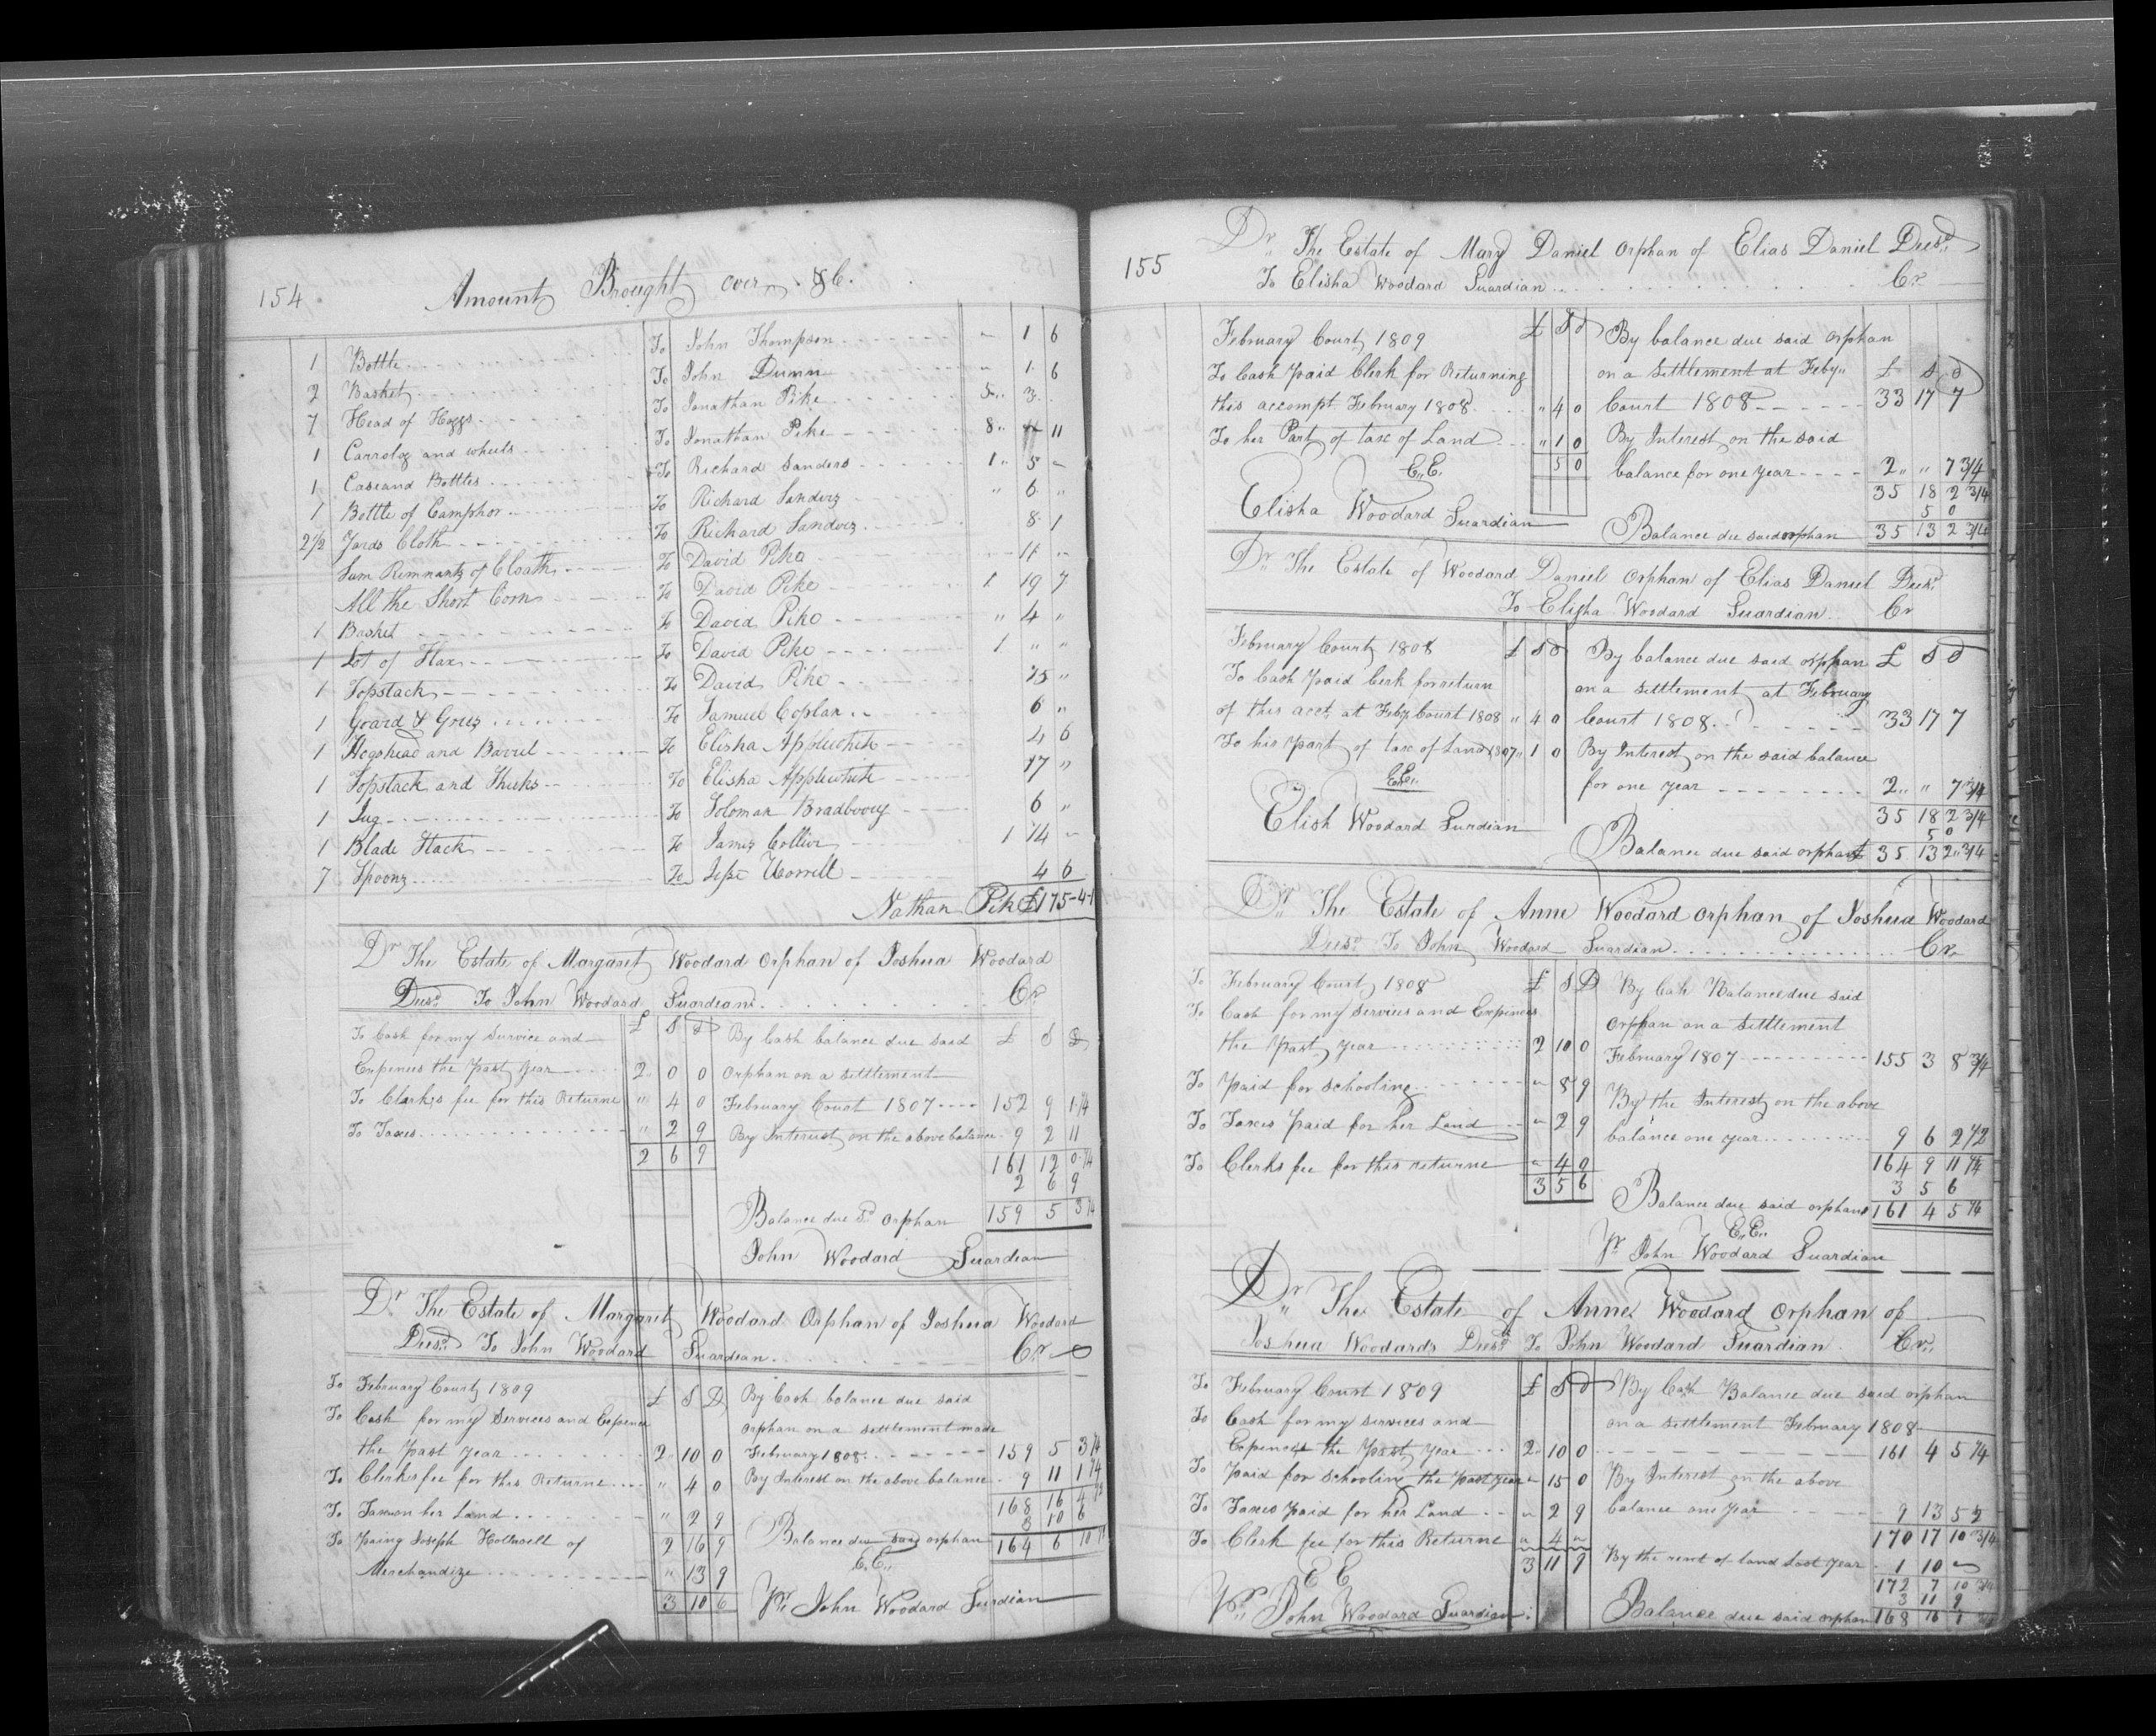 154 Amount Brought over &C.
1 Bottle To John Thompson " 1 6
2 Basket To John Dunn " 1 6
7 Head of Hoggs To Jonathan Pike 5 3
1 Carrolog and wheels To Jonathan Pike 8 11
1 Case and Bottles To Richard Sanders 1 5 "
1 Bottle of Camphor To Richard Sanders " 6 "
2 1/2 Yards Cloth To Richard Sanders 8 1
Sum Remnants of Cloath To David Pike 11 "
All the Short Corn To David Pike 1 19 7
1 Basket To David Pike " 4 "
1 Lot of Flax To David Pike 1 " "
1 Fopstack To David Pike 25 "
1 Goard & Grees To Samuel Coplan 6 "
1 Hogshead and Barrel To Elisha Applewhite 4 6
1 Fopstack and Thicks To Elisha Applewhite 17 "
1 Jug To Soloman Bradboory 6 "
1 Blade Stack To James Collier 1 14 "
7 Spoons To Jesse Worrell 4 6
Nathan Pike £175-4-1
Dr The Estate of Margaret Woodard Orphan of Joshua Woodard
Deesd To John Woodard Guardian Cr
To Cash for my Service and £ S D By Cash balance due said £ S D
Expences the Past year 2 0 0 Orphan on a settlement
To Clarks fee for this Returne " 4 0 February Court 1807 152 9 1 1/4
To Taxes " 2 9 By Interest on the above balance 9 2 11
2 6 9 161 12 0 1/4
2 6 9
Balance due sd orphan 159 5 3 1/4
John Woodard Guardian
Dr The Estate of Margaret Woodard Orphan of Joshua Woodard
Deesd To John Woodard Guardian Cr
To February Court 1809 £ S D By Cash balance due said
To Cash for my Services and Expence orphan on a settlement made
the Past year 2 10 0 February 1808 159 5 3 1/4
To Clerks fee for this Returne " 4 0 By Interest on the above balance 9 11 1 1/4
To Tax on her Land " 2 9 168 16 4 1/2
3 10 6
To Paing Joseph Hollowell of 2 16 9 Balance due said orphan 164 6 10
Merchandize " 13 9 E.E.
3 10 6 Pr John Woodard Gurdian
155 Dr The Estate of Mary Daniel Orphan of Elias Daniel Deesd
To Elisha Woodard Guardian Cr
February Court 1809 £ S D By balance due said Orphan
To Cash paid Clerk for Returning on a Settlement at Feby £ S D
this accompt February 1808 " 4 0 Court 1808 33 17 7
To her Part of tax of Land " 1 0 By Interest on the said
E.E. 5 0 balance for one year 2 " 7 3/4
35 18 2 3/4
Elisha Woodard Guardian 5 0
Balance due said orphan 35 13 2 3/4
Dr The Estate of Woodard Daniel Orphan of Elias Daniel Deesd
To Elisha Woodard Guardian Cr
February Court 1808 £ S D By balance due said orphan £ S D
To Cash paid Cerk for return on a settlement at February
of this acct at Feby Court 1808 " 4 0 Court 1808 33 17 7
To his part of tax of Land 1807 " 1 0 By Interest on the said balance
E.E. for one year 2 " 7 3/4
35 18 2 3/4
Elish Woodard Gurdian 5 0
Balance due said orphan £ 35 13 2 3/4
Dr The Estate of Anne Woodard orphan of Joshua Woodard
Deesd To John Woodard Guardian Cr
To February Court 1808 £ S D By Cash Balance due said
To Cash for my Services and Expences Orphan on a settlement
the Past year 2 10 0 February 1807 155 3 8 3/4
To paid for schooling " 8 9 By the Interest on the above
To Taxes Paid for her Land " 2 9 balance one year 9 6 2 1/2
To Clerks fee for this returne " 4 0 164 9 11 1/4
3 5 6 3 5 6
Balance due said orphan 161 4 5 1/4
E.E.
Pr John Woodard Guardian
Dr The Estate of Anne Woodard orphan of
Joshua Woodards Deesd To John Woodard Guardian Cr
To February Court 1809 £ S D By Cash Balance due said orphan
To Cash for my services and on a settlement February 1808
Expences the Past year 2 10 0 161 4 5 1/4
To Paid for Schooling the past year " 15 0 By Interest on the above
To Taxes paid for her Land " 2 9 balance one year 9 13 5 1/2
To Clerk fee for this Returne " 4 " 170 17 10 3/4
3 11 9 By the rent of land last year 1 10 "
E E 172 7 10 3/4
3 11 9
Pr John Woodard Guardian Balance due said orphan 168 16 1 3/4